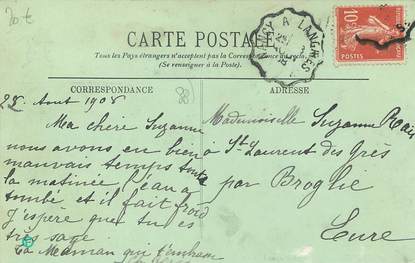 20 €
CARTE POSTALE
Tous les Pays étrangers n'acceptent pas la Correspondance au recto.
(Se renseigner à la Poste).
NANCY A LANGRES
10
CORRESPONDANCE
28. Aout 1908
Ma chère Suzanne
nous avons eu bien
mauvais temps toute
la matinée l'eau a
tombé et il fait froid
J'espère que tu es
très sage
Ta Maman qui t'embrasse
ADRESSE
Mademoiselle Suzanne
à St Laurent des Grès
par Broglie
Eure